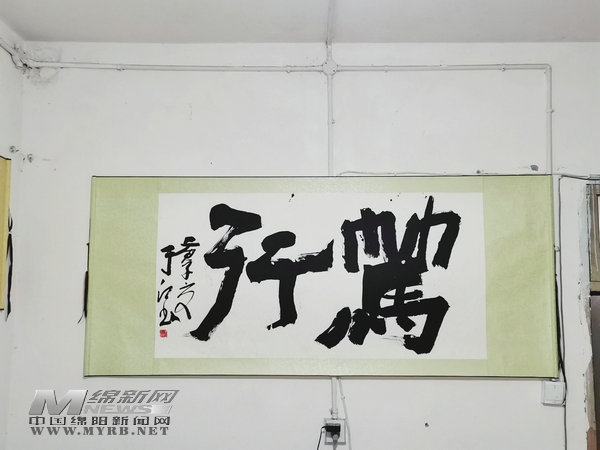 篤行
M 绵新网
NEWS
中国绵阳新闻网
WWW.MYRB.NET